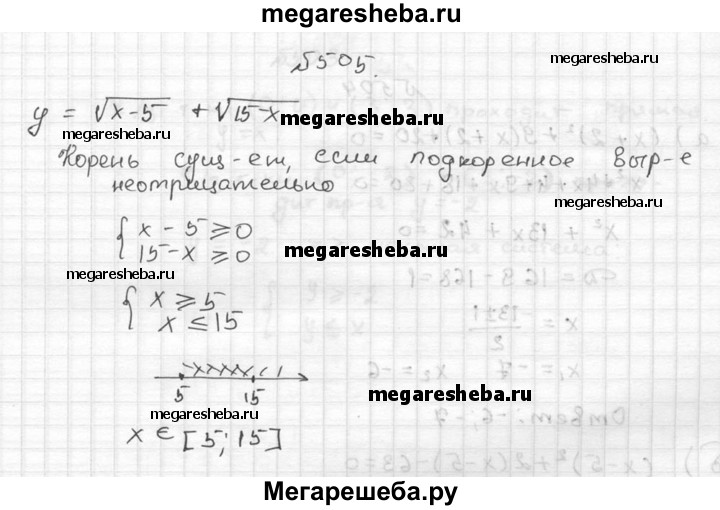 megaresheba.ru
№505.
megaresheba.ru
y = √x-5 + √15-x
megaresheba.ru
megaresheba.ru
Корень сущ-ет, если подкоренное выр-е
неотрицательно
{ x - 5 ≥ 0
15 - x ≥ 0
megaresheba.ru
megaresheba.ru
{ x ≥ 5
x ≤ 15
5 15
megaresheba.ru
megaresheba.ru
x ∈ [5; 15]
Мегарешеба.ру